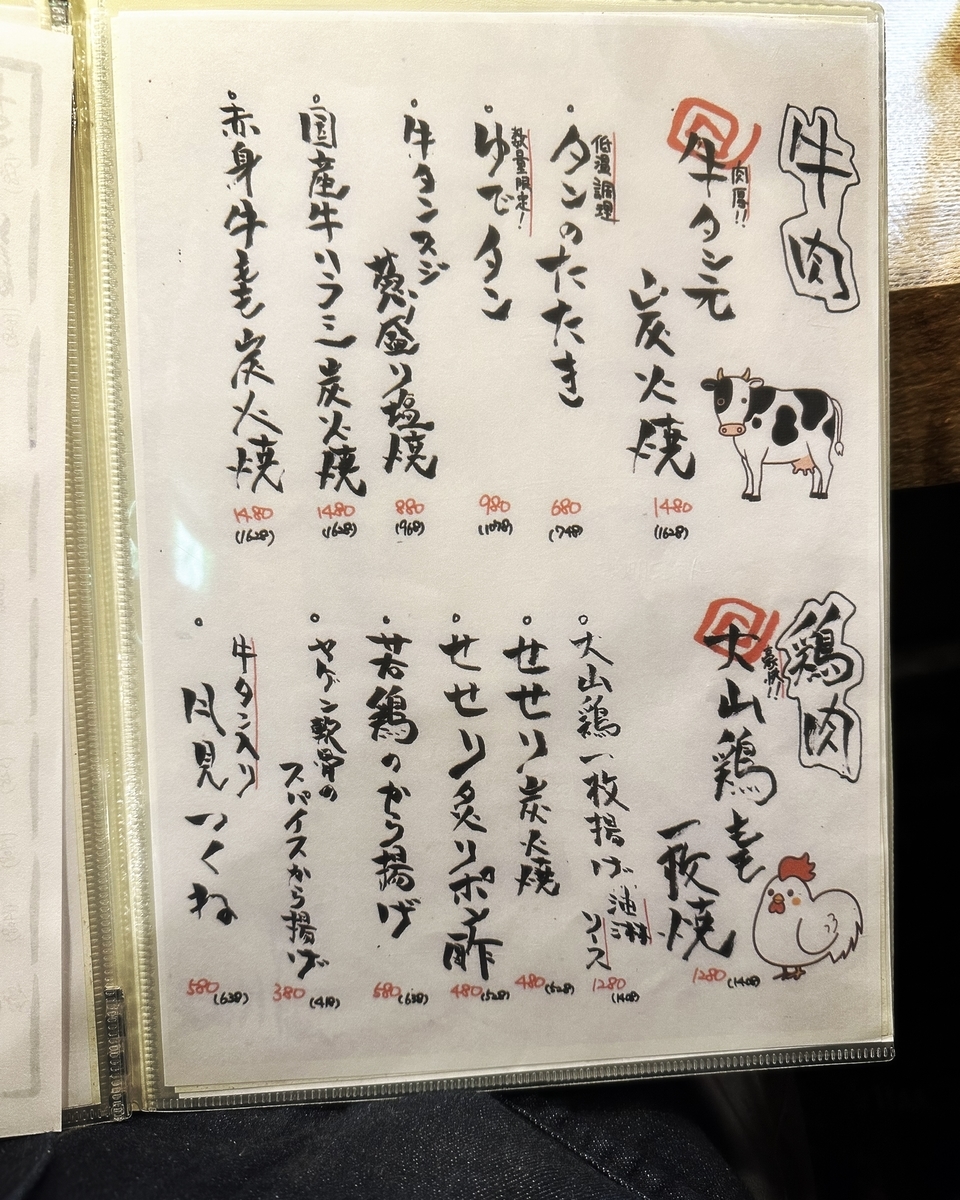 牛肉
肉厚!!
牛タン元
炭火焼
1480
(1628)
低温調理
タンのたたき
680
(748)
数量限定!
ゆでタン
980
(1078)
牛タンスジ
葱盛り塩焼
880
(968)
国産牛ハラミ炭火焼
1480
(1628)
赤身牛もも炭火焼
1480
(1628)
鶏肉
豪快!!
大山鶏もも
一枚焼
1280
(1408)
大山鶏一枚揚げ
油淋
ソース
1280
(1408)
せせり炭火焼
480
(528)
せせり炙りポン酢
480
(528)
若鶏のから揚げ
580
(638)
ヤゲン軟骨の
スパイスから揚げ
380
(418)
牛タン入り
月見つくね
580
(638)